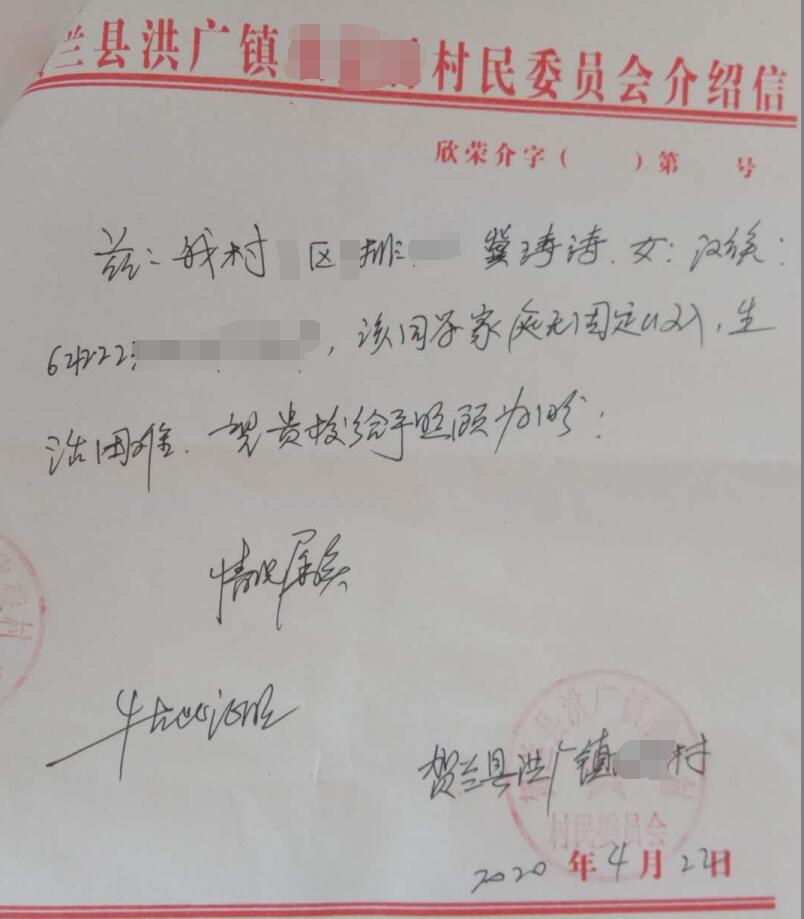 兰县洪广镇 村民委员会介绍信
欣荣介字（ ）第 号
兹: 我村 区 排 冀涛涛. 女: 汉族:
64222 , 该同学家庭无固定收入, 生
活困难. 望贵校给予照顾为盼:
情况属实
特此证明
贺兰县洪广镇 村
村民委员会
2020 年 4 月 22 日